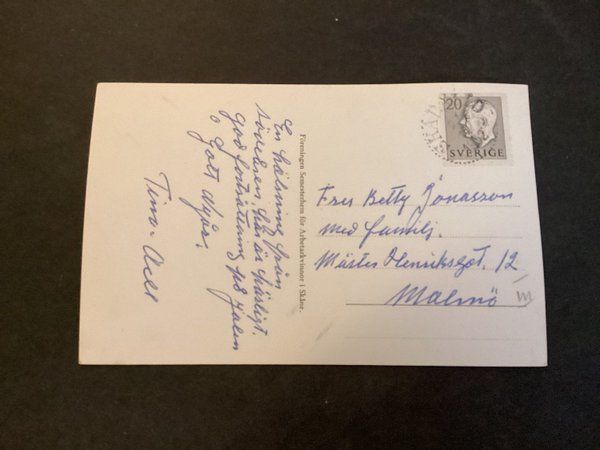 En hälsning från
södern, här är härligt.
god fortsättning på Julen
o Gott Nytt År.
Tina - Axel
Föreningen Semesterhem för Arbetarkvinnor i Skåne.
20
SVERIGE
Fru Betty Jonasson
med familj.
Mäster Henriksgat. 12
Malmö